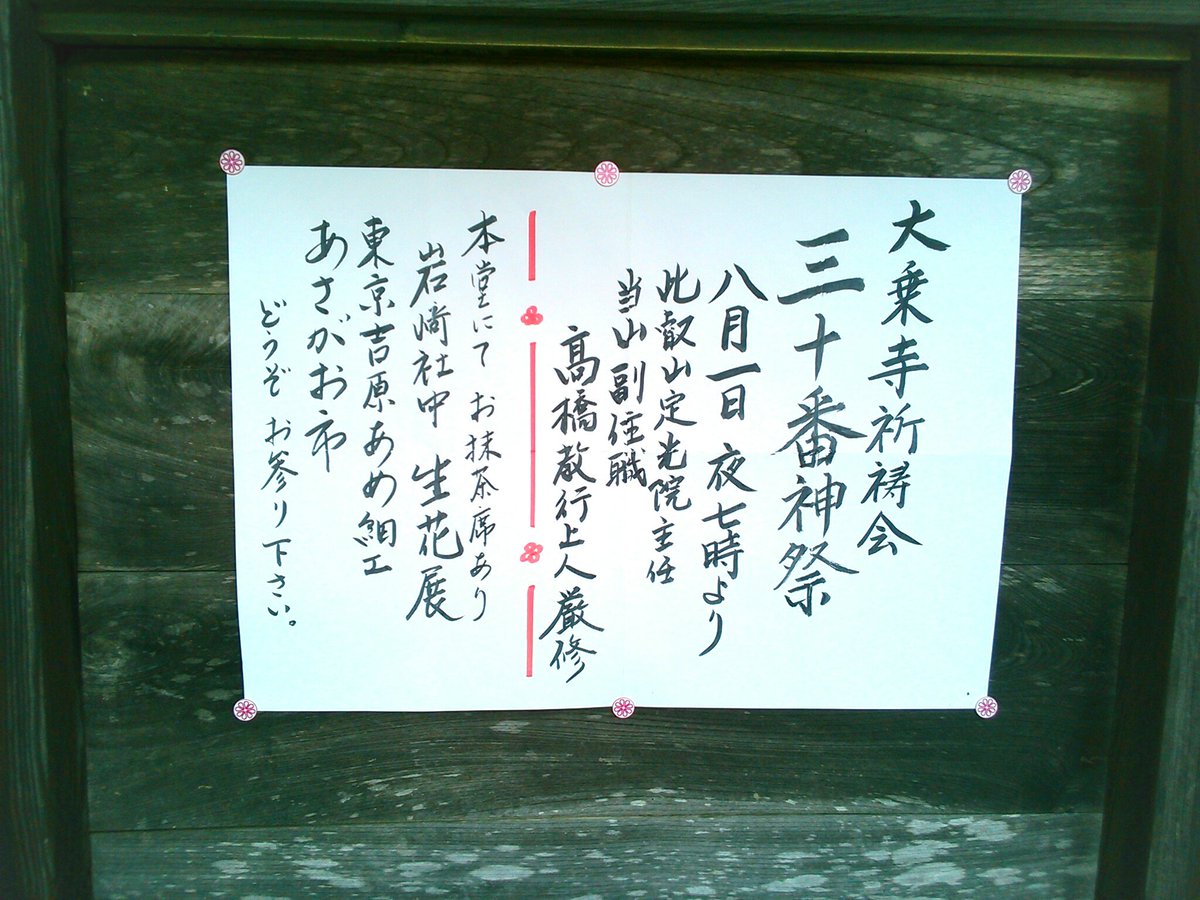 大乗寺祈祷会
三十番神祭
八月一日 夜七時より
比叡山定光院主任
当山副住職
髙橋教行上人厳修
本堂にて お抹茶席あり
岩﨑社中 生花展
東京吉原あめ細工
あさがお市
どうぞ お参り下さい。